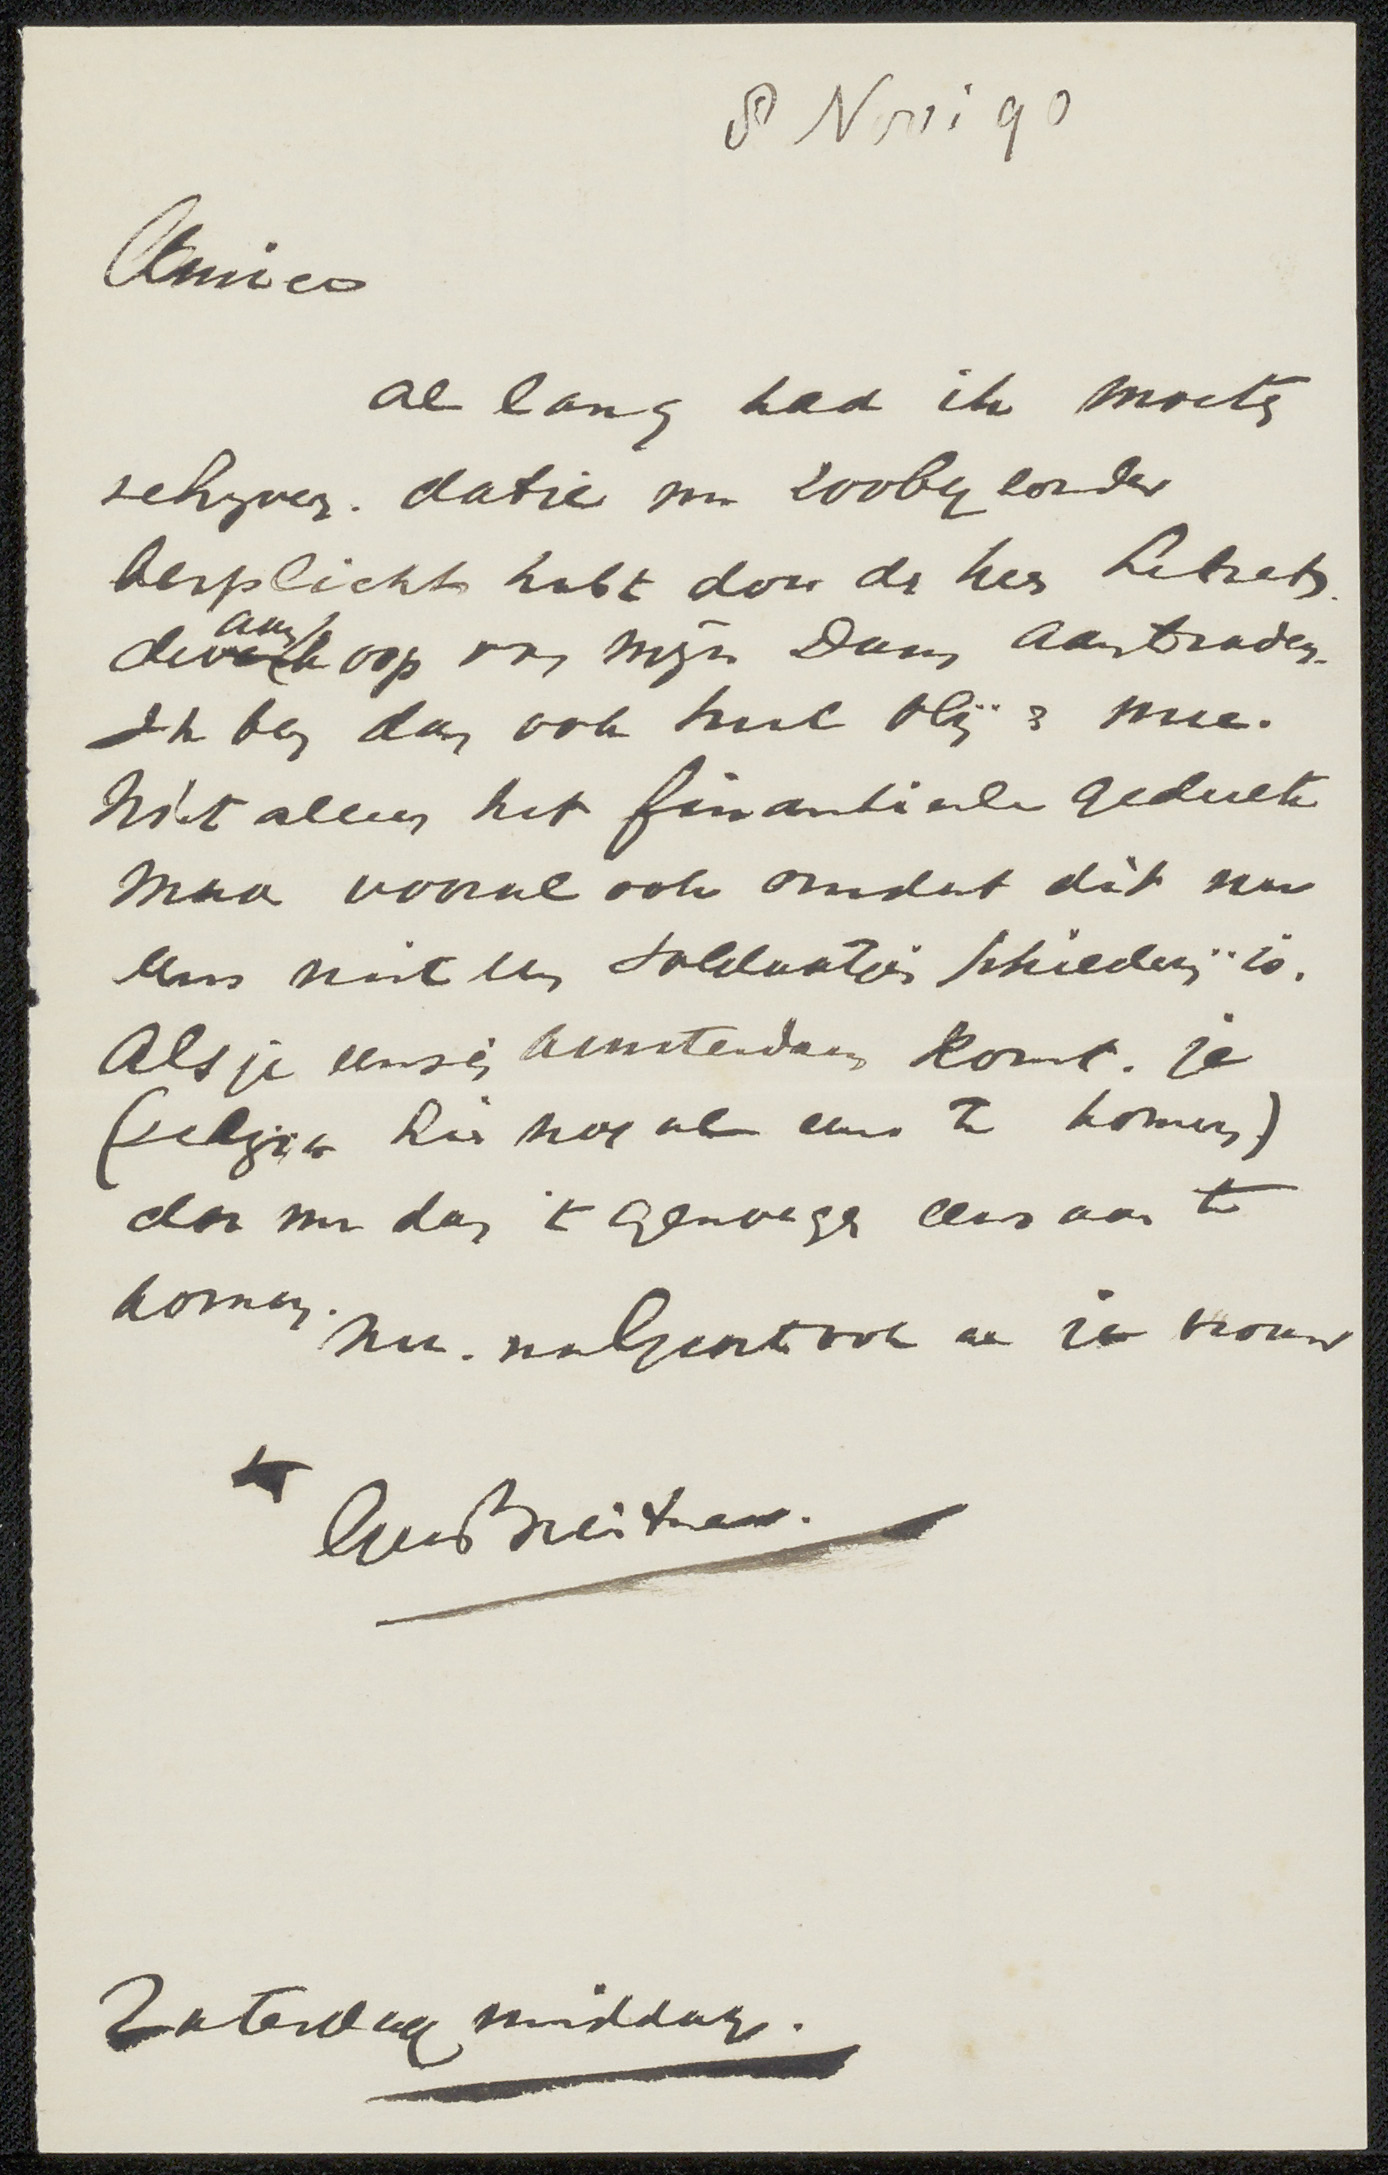 8 Nov: 90
Amice
al lang had ik moeten
schrijven. dat je me zoo byzonder
verplicht hebt door de heer
de aankoop van mijn Dam aanteraden.
Ik ben dan ook heel blij er mee.
Niet alleen het finantieele gedeelte
maar vooral ook omdat dit nu
eens niet een soldaatjes schilderij is.
Als je eens in Amsterdam komt. je
(schijnt hier nog al eens te komen)
doe me dan 't genoegen eens aan te
komen.
Nu. ook aan je vrouw
tt
Geo Breitner.
Zaterdag middag.